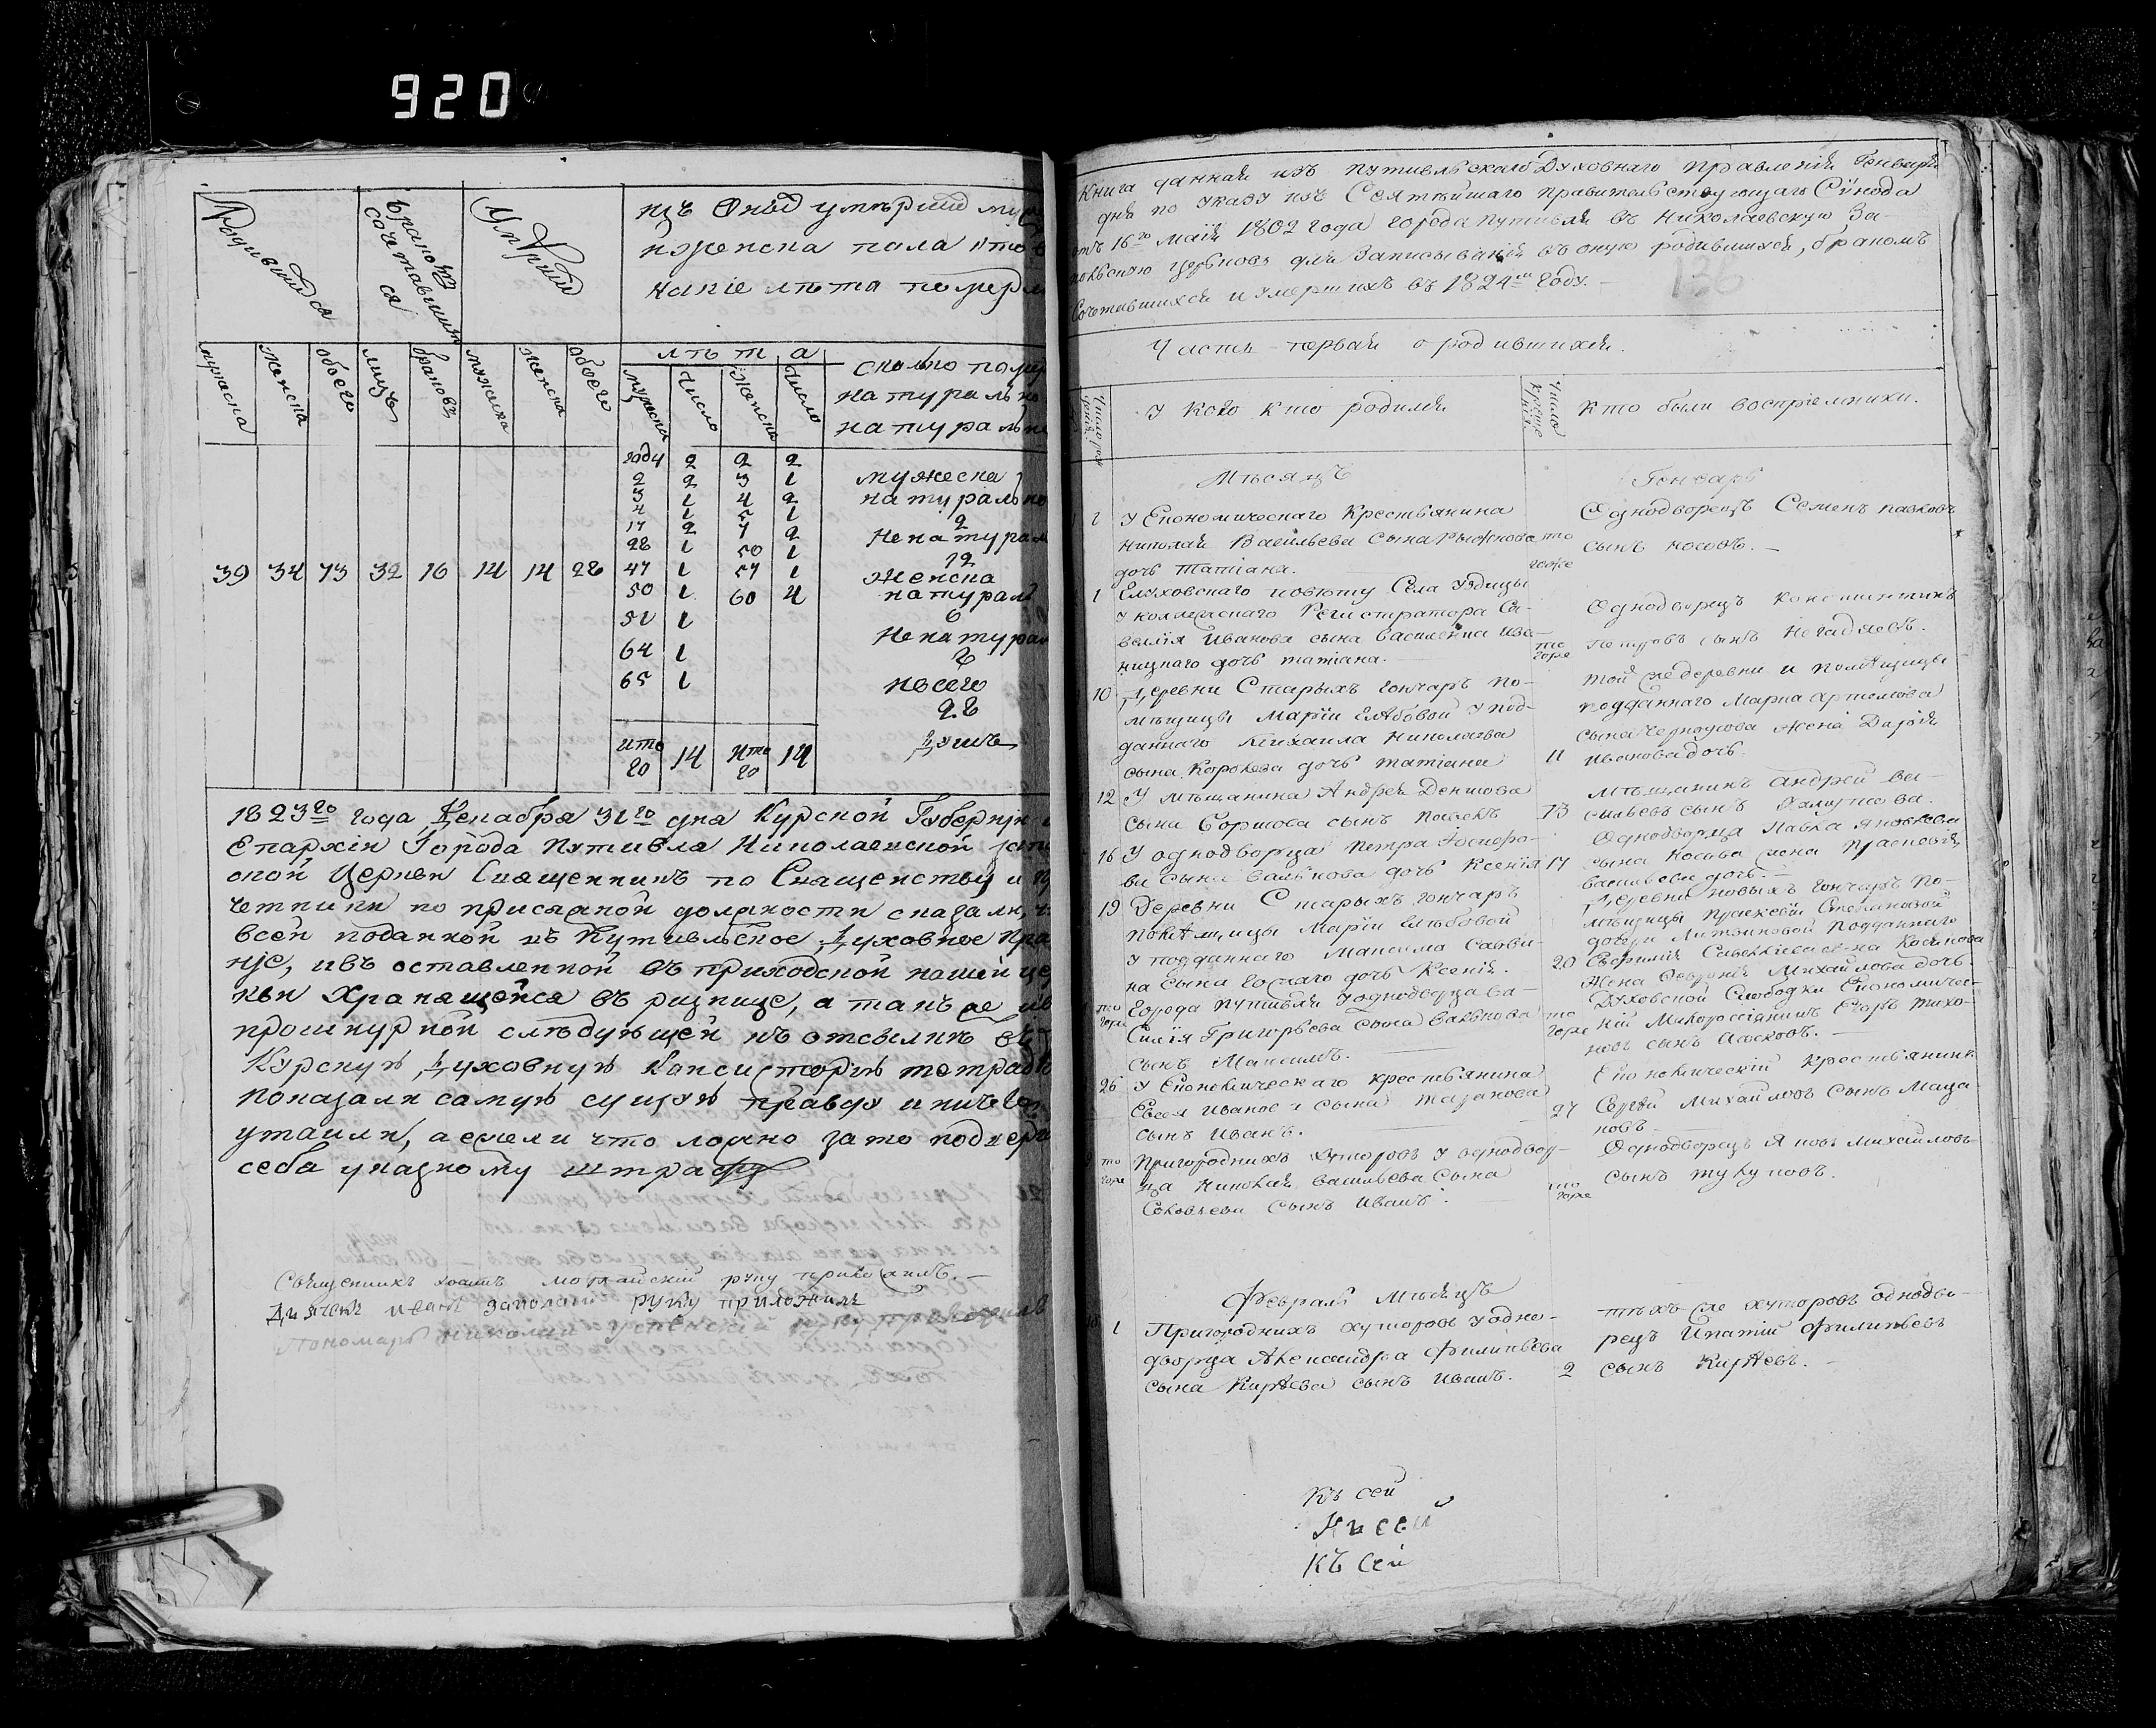 920
Родившiися
бракомъ сочетавшихся
Умершiи
изъ Оныхъ умершихъ муж
иженска пола кто в
какiе лѣта померли
мужеска
женска
обоего
лицъ
браковъ
мужеска
женска
обоего
лѣта
мужеска
число
женска
число
сколько поме
натурально
натураль
39 34 73 32 16 14 14 28
году 2 2 2
2 2 3 1
3 1 4 2
4 1 5 1
17 2 7 2
28 1 50 1
47 1 57 1
50 1 60 4
51 1
64 1
65 1
Итого 14 Итого 14
мужеска
натурально
2
Ненатурал
12
женска
натурал
6
Ненатурал
всего
28
душъ
1823го года Декабря 31го дня Курской Губернiи и
Епархiи Города Путивля Николаевской
ской Церкви Священникъ по Священству и
четники по присяжной должности сказали, ч
всей поданной въ Путивльское Духовное Пра
нiе, ивъ оставленной въ приходской нашей це
кви Хранящейся въ ризнице, а такъ же ив
прошнурной слѣдующей къ отсылкѣ въ
Курскую Духовную Консисторiю тетрадѣ
показали самую сущую правду иничего
утаили, а ежели что ложно зато подверг
себя указному штрафу
Священникъ Iоаннъ Можайскiй руку приложилъ.
Дьячекъ иванъ руку приложилъ
Пономарь николай Успенскiй руку приложилъ
Книга данная изъ Путивльскаго Духовнаго Правленiя Генваря
дня по Указу изъ Святѣйшаго Правительствующаго Сѵнода
отъ 16го Маiя 1802 года города Путивля въ Николаевскую За-
Церковь для Записыванiя въ оную родившихся, бракомъ
Сочетавшихся и Умершихъ въ 1824мъ Году.
136
Часть первая о родившихся.
У Кого кто родился
Число креще нiя
Кто были воспрiемники.
Мѣсяцъ
Генварь
1 У Економическаго Крестьянина
Николая Васильева Сына Рыжкова
дочь Татiана.
тогоже
Однодворецъ Семенъ павловъ
сынъ носовъ.
1 Глуховскаго повѣту Села Уздицы
У коллежскаго Регистратора Са-
велiя Иванова сына Василенка Ива-
ницкаго дочь татiана.
тогоже
Однодворецъ константинъ
Петровъ сынъ Негадяевъ.
10 Деревни Старыхъ Гончаръ по-
мѣщицы Марiи Глѣбовой У под-
даннаго Михаила Николаева
сына Королева дочь татiана
11
той же деревни и помѣщицы
подданнаго Марка Артемова
сына Черноусова Жена Дарiя
Иванова дочь.
12 У мѣщанина Андрея Денисова
сына Боршова сынъ Павелъ
13
мѣщанинъ Андрей Ва-
сильевъ сынъ Халимова.
16 У однодворца Петра
ва Сына Валькова дочь Ксенiя
17
Однодворца Павла Яковлева
сына Носова жена Прасковiя
васильева дочь.
19 Деревни Старыхъ Гончаръ
помѣщицы Марiи Глѣбовой
У подданнаго Максима Савви-
на Сына дочь Ксенiя.
20
Деревни новыхъ Гончаръ По-
мѣщицы Степановой
дочери Подданнаго
сына Косинова
Жена Михайлова дочь.
тогоже
Города Путивля Уоднодворца Ва-
силiя Григорьева Сына Валькова
сынъ Максимъ.
тогоже
Духовской Слободки Економичес-
кiй Малороссiянинъ Егоръ Тихо-
новъ сынъ
26 У Економическаго крестьянина
Евсея Иванова Сына Мазанова
сынъ Иванъ.
27
Економическiй Крестьянинъ
Сергѣй Михайловъ Сынъ Маза
новъ
тогоже
Пригородныхъ хуторовъ У однодвор-
ца Николая Васильева Сына
Соловьева Сынъ Иванъ.
тогоже
Однодворецъ Яковъ Михайловъ
сынъ тукуловъ.
Февраль Мѣсяцъ
1 Пригородныхъ хуторовъ Уодно-
дворца Александра Филипьева
сына Кирѣева сынъ Иванъ.
2
тѣхъ же хуторовъ однодво-
рецъ Ипатiй Филипьевъ
сынъ Кирѣевъ.
Къ сей
Къ сей
Къ сей